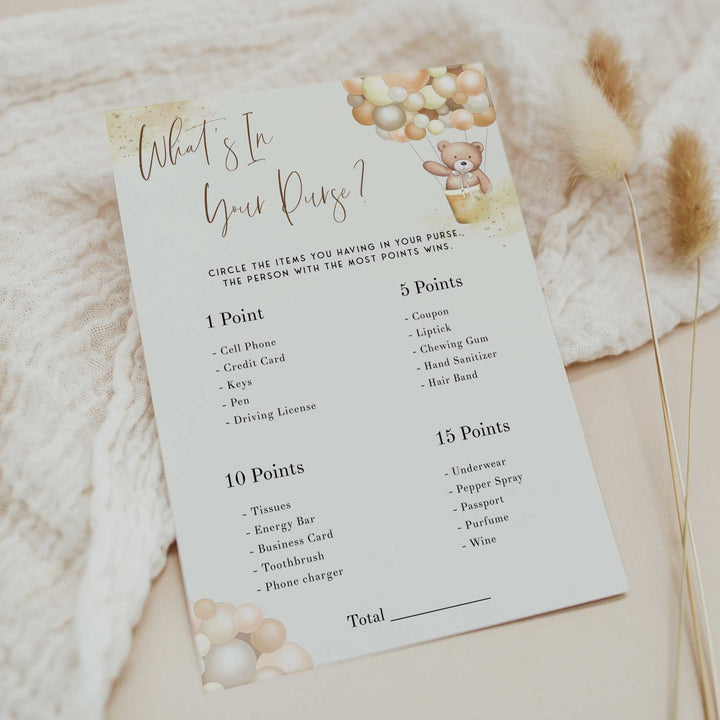 What's In
Your Purse?
CIRCLE THE ITEMS YOU HAVING IN YOUR PURSE..
THE PERSON WITH THE MOST POINTS WINS.
1 Point
- Cell Phone
- Credit Card
- Keys
- Pen
- Driving License
5 Points
- Coupon
- Liptick
- Chewing Gum
- Hand Sanitizer
- Hair Band
10 Points
- Tissues
- Energy Bar
- Business Card
- Toothbrush
- Phone charger
15 Points
- Underwear
- Pepper Spray
- Passport
- Purfume
- Wine
Total ____________